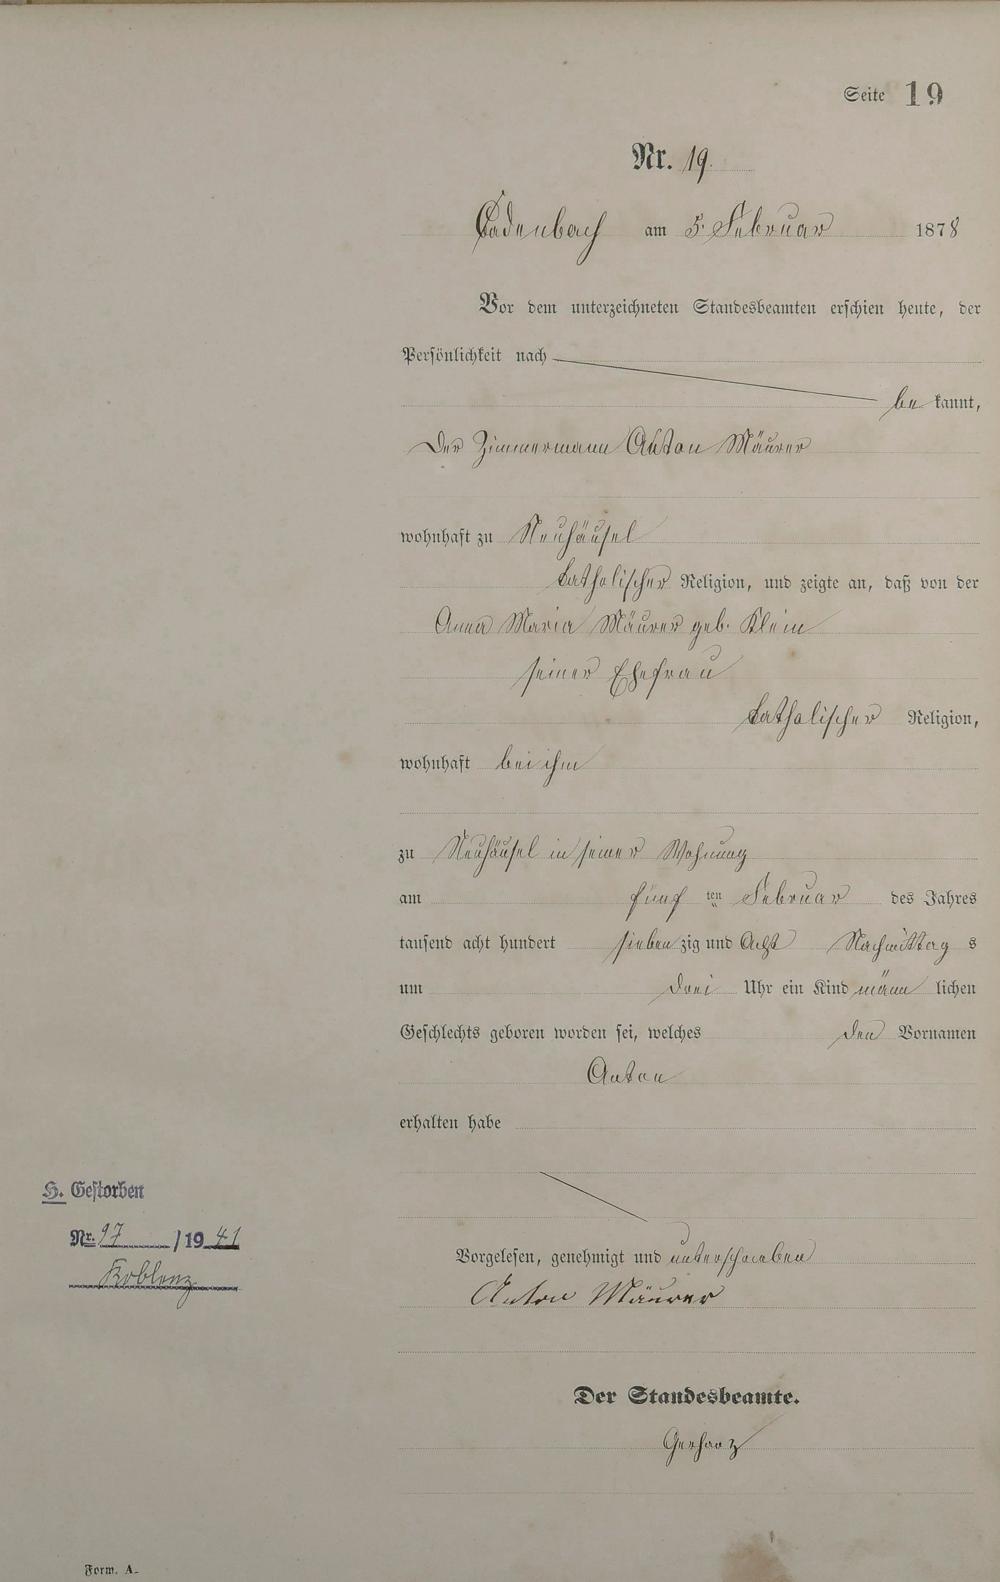 Seite 19
Nr. 19.
Cadenbach am 5. Februar 1878
Vor dem unterzeichneten Standesbeamten erschien heute, der
Persönlichkeit nach
be kannt,
der Zimmermann Anton Mäurer
wohnhaft zu Neuhäusel
katholischer Religion, und zeigte an, daß von der
Anna Maria Mäurer geb. Klein
seiner Ehefrau
katholischer Religion,
wohnhaft bei ihm
zu Neuhäusel in seiner Wohnung
am fünf ten Februar des Jahres
tausend acht hundert sieben zig und Acht Nachmittag s
um drei Uhr ein Kind männ lichen
Geschlechts geboren worden sei, welches den Vornamen
Anton
erhalten habe
H. Gestorben
Nr. 97 / 19 41
Koblenz
Vorgelesen, genehmigt und unterschrieben
Anton Mäurer
Der Standesbeamte.
Gerharz
Form. A.